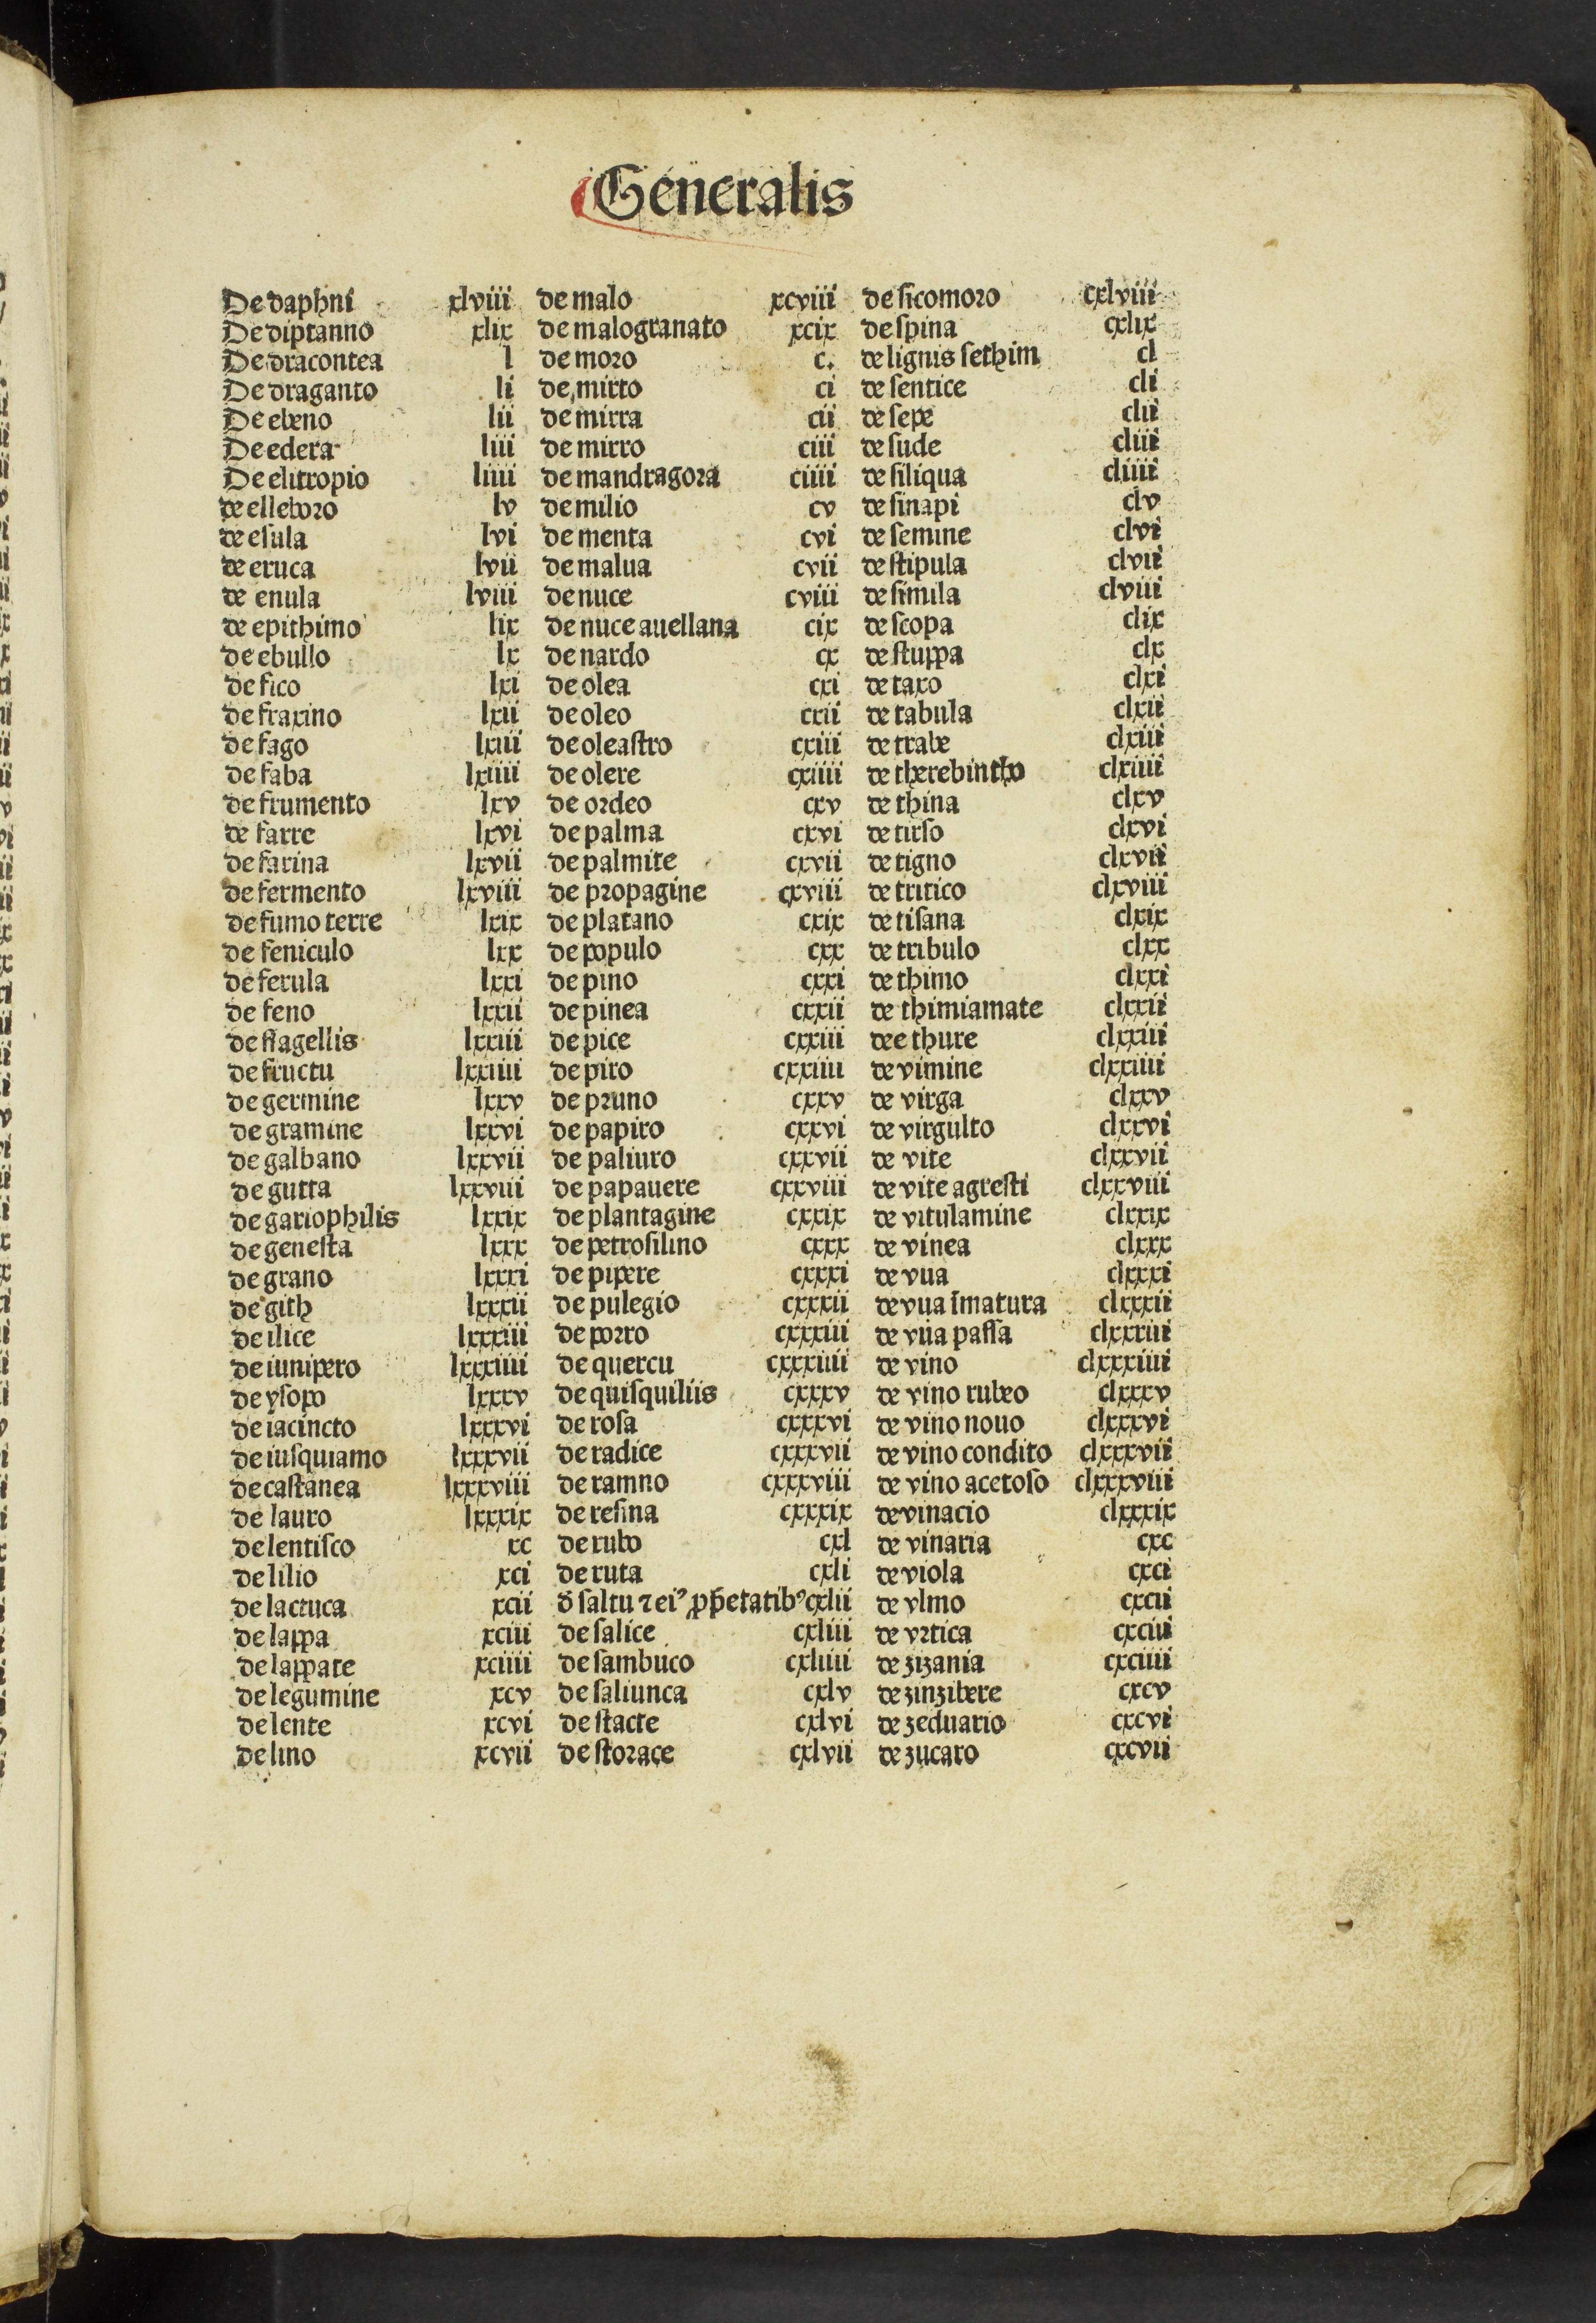 Generalis
De daphni xlviii
De diptanno xlix
De dracontea l
De draganto li
De ebeno lii
De edera liii
De elitropio liiii
de elleboro lv
de eſula lvi
de eruca lvii
de enula lviii
de epithimo lix
de ebullo lx
de fico lxi
de fraxino lxii
de fago lxiii
de faba lxiiii
de frumento lxv
de farre lxvi
de farina lxvii
de fermento lxviii
de fumo terre lxix
de feniculo lxx
de ferula lxxi
de feno lxxii
de flagellis lxxiii
de fructu lxxiiii
de germine lxxv
de gramine lxxvi
de galbano lxxvii
de gutta lxxviii
de gariophilis lxxix
de geneſta lxxx
de grano lxxxi
de gith lxxxii
de ilice lxxxiii
de iunipero lxxxiiii
de yſopo lxxxv
de iacincto lxxxvi
de iuſquiamo lxxxvii
de caſtanea lxxxviii
de lauro lxxxix
de lentiſco xc
de lilio xci
de lactuca xcii
de lappa xciii
de lappate xciiii
de legumine xcv
de lente xcvi
de lino xcvii
de malo xcviii
de malogranato xcix
de moro c.
de mirto ci
de mirra cii
de mirro ciii
de mandragora ciiii
de milio cv
de menta cvi
de malua cvii
de nuce cviii
de nuce auellana cix
de nardo cx
de olea cxi
de oleo cxii
de oleaſtro cxiii
de olere cxiiii
de ordeo cxv
de palma cxvi
de palmite cxvii
de propagine cxviii
de platano cxix
de populo cxx
de pino cxxi
de pinea cxxii
de pice cxxiii
de piro cxxiiii
de pruno cxxv
de papiro cxxvi
de paliuro cxxvii
de papauere cxxviii
de plantagine cxxix
de petroſilino cxxx
de pipere cxxxi
de pulegio cxxxii
de porro cxxxiii
de quercu cxxxiiii
de quiſquiliis cxxxv
de roſa cxxxvi
de radice cxxxvii
de ramno cxxxviii
de reſina cxxxix
de rubo cxl
de ruta cxli
ð ſaltu ⁊ ei⁹ ꝓp̄etatib⁹ cxlii
de ſalice cxliii
de ſambuco cxliiii
de ſaliunca cxlv
de ſtacte cxlvi
de ſtorace cxlvii
de ſicomoro cxlviii
de ſpina cxlix
de lignis ſethim cl
de ſentice cli
de ſepe clii
de ſude cliii
de ſiliqua cliiii
de ſinapi clv
de ſemine clvi
de ſtipula clvii
de ſimila clviii
de ſcopa clix
de ſtuppa clx
de taxo clxi
de tabula clxii
de trabe clxiii
de therebintho clxiiii
de thina clxv
de tirſo clxvi
de tigno clxvii
de tritico clxviii
de tiſana clxix
de tribulo clxx
de thimo clxxi
de thimiamate clxxii
dee thure clxxiii
de vimine clxxiiii
de virga clxxv
de virgulto clxxvi
de vite clxxvii
de vite agreſti clxxviii
de vitulamine clxxix
de vinea clxxx
de vua clxxxi
de vua īmatura clxxxii
de vua paſſa clxxxiii
de vino clxxxiiii
de vino rubeo clxxxv
de vino nouo clxxxvi
de vino condito clxxxvii
de vino acetoſo clxxxviii
de vinacio clxxxix
de vinaria cxc
de viola cxci
de vlmo cxcii
de vrtica cxciii
de zizania cxciiii
de zinzibere cxcv
de zeduario cxcvi
de zucaro cxcvii